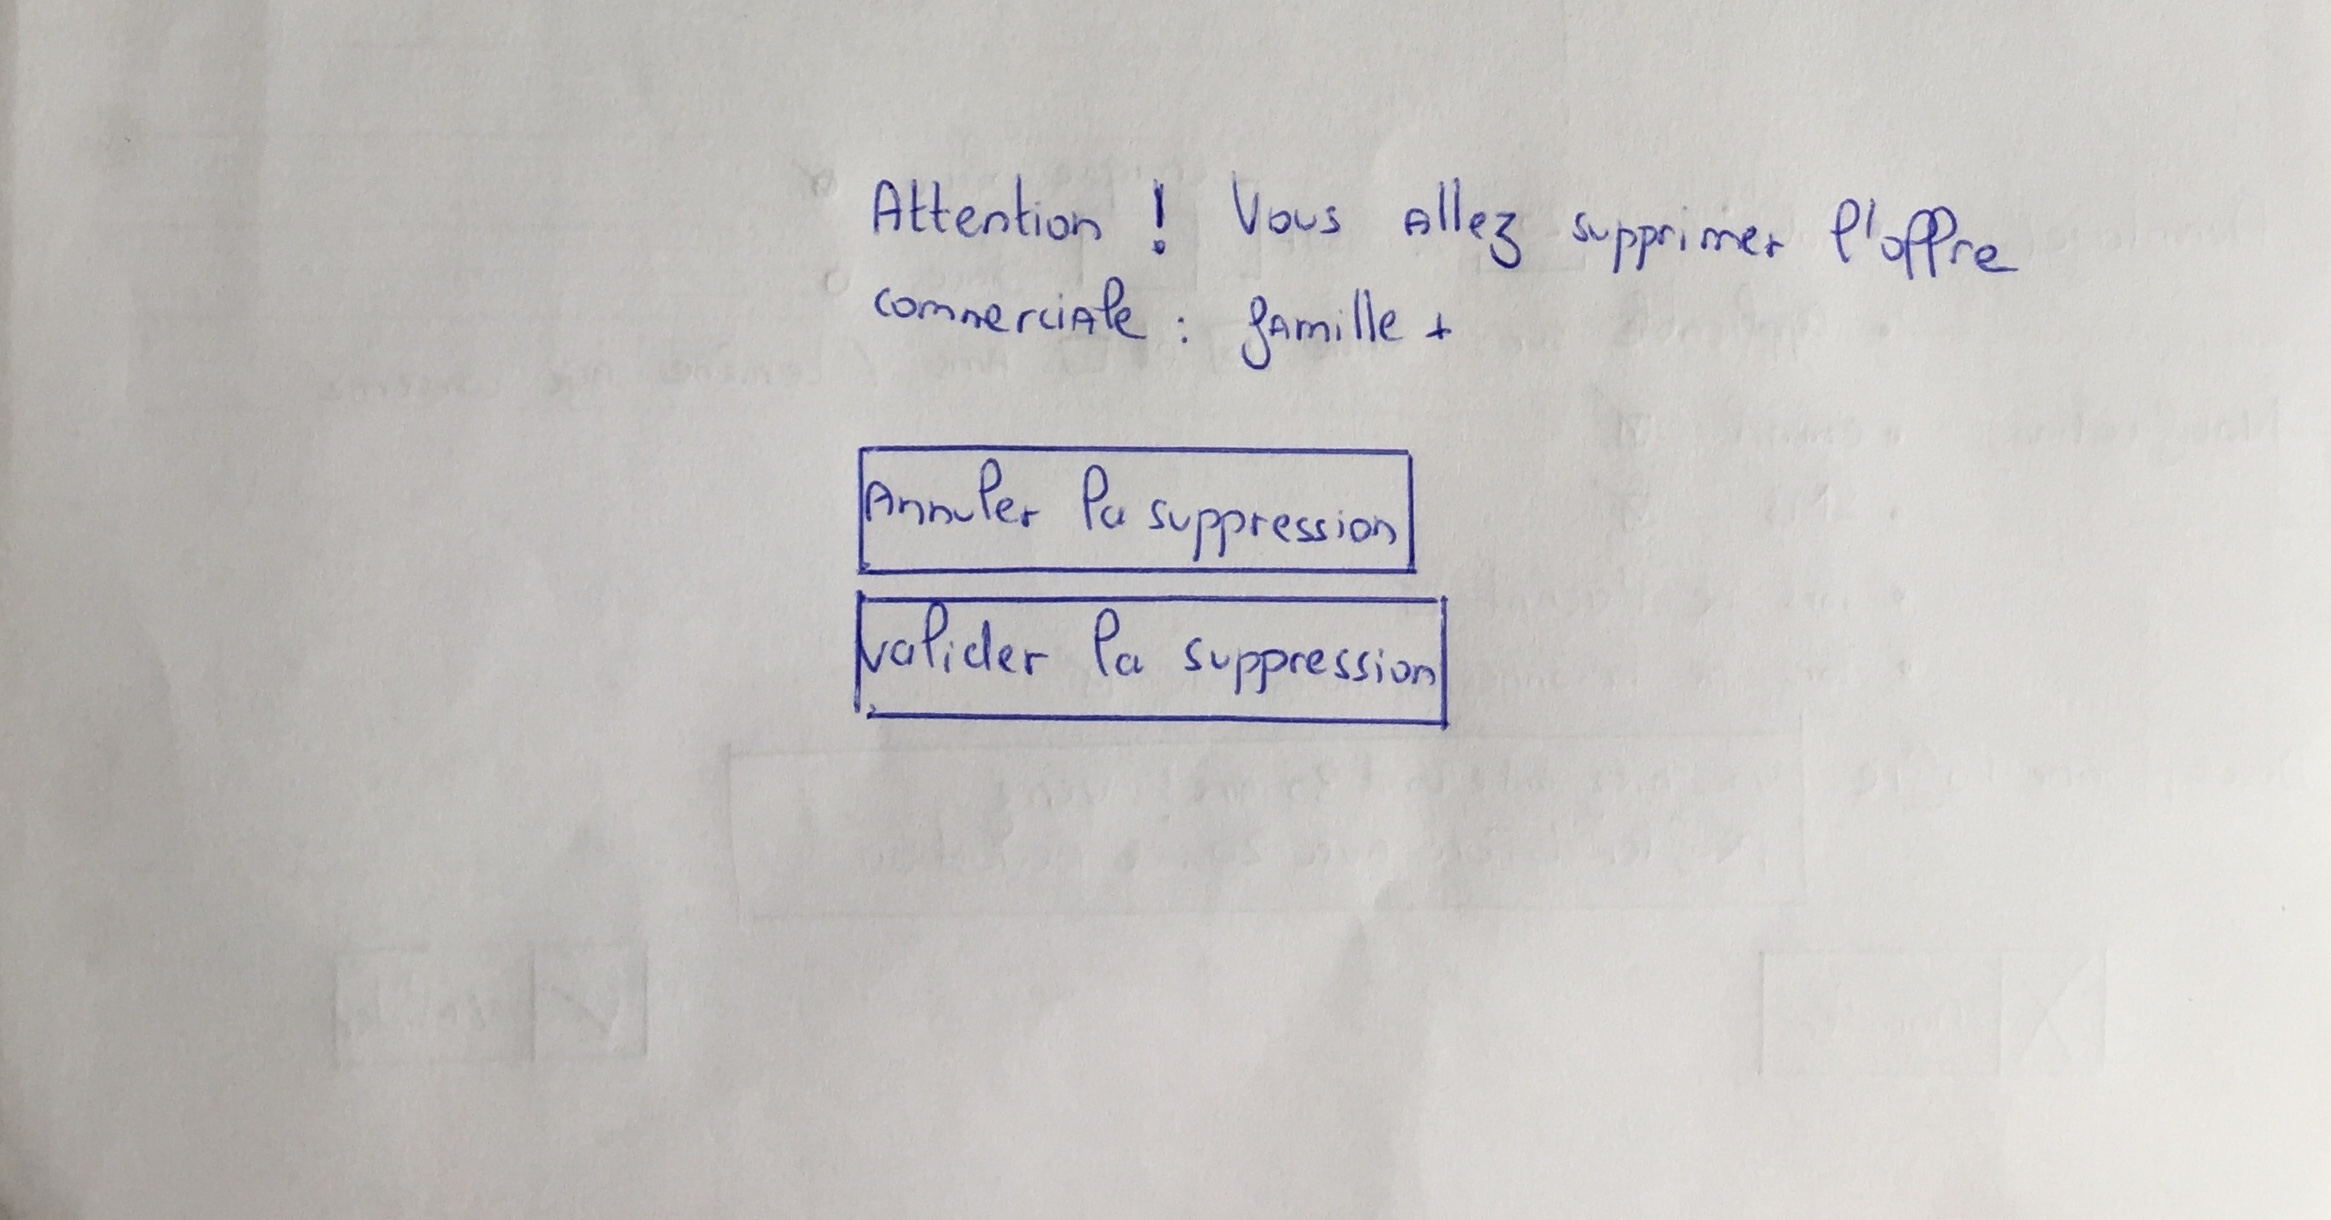 Attention ! Vous allez supprimer l'offre
commerciale : famille +
Annuler la suppression
valider la suppression